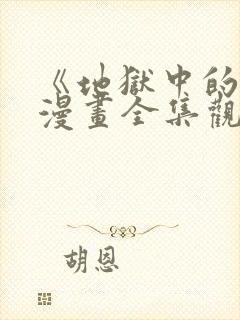 《地獄中的
漫畫全集觀
胡恩